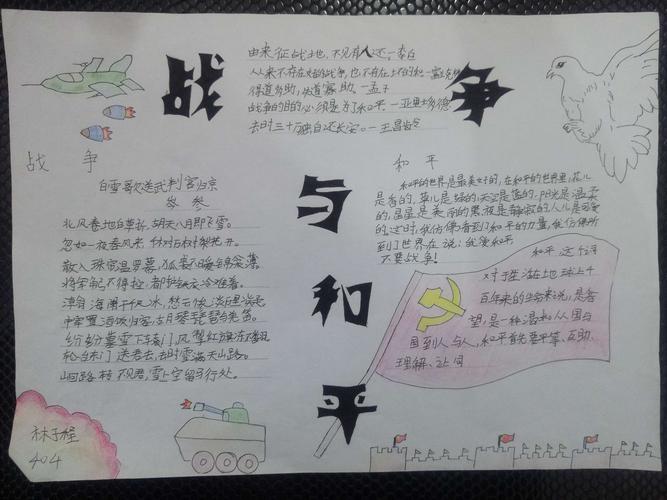 战争与和平
由来征战地，不见有人还。—李白
从来不存在好的战争，也不存在坏的和
得道多助，失道寡助。—孟子
战争的目的必须是为了和平—亚里士多德
去时三十万，独自还长安。—王昌龄
战 争
白雪歌送武判官归京
岑参
北风卷地白草折，胡天八月即飞雪。
忽如一夜春风来，千树万树梨花开。
散入珠帘湿罗幕，狐裘不暖锦衾薄。
将军角弓不得控，都护铁衣冷难着。
瀚海阑干百丈冰，愁云惨淡万里凝
中军置酒饮归客，胡琴琵琶与羌笛。
纷纷暮雪下辕门，风掣红旗冻不翻
轮台东门送君去，去时雪满天山路。
山回路转不见君，雪上空留马行处。
和 平
和平的世界是最美好的，在和平的世界里，花儿
是香的，草儿是绿的，天空是蓝的，阳光是温柔
的，星星是美丽的，黑夜是静寂的，人儿是可爱
的。这时，我仿佛看到了和平的力量，我仿佛听
到了世界在说：我爱和平
不要战争！
和平这个词
对于生活在地球上千
百年来的生命来说，是希
望，是一种温和，从国与
国到人与人，和平首先要平等、互助、
理解、让同
林子程
404